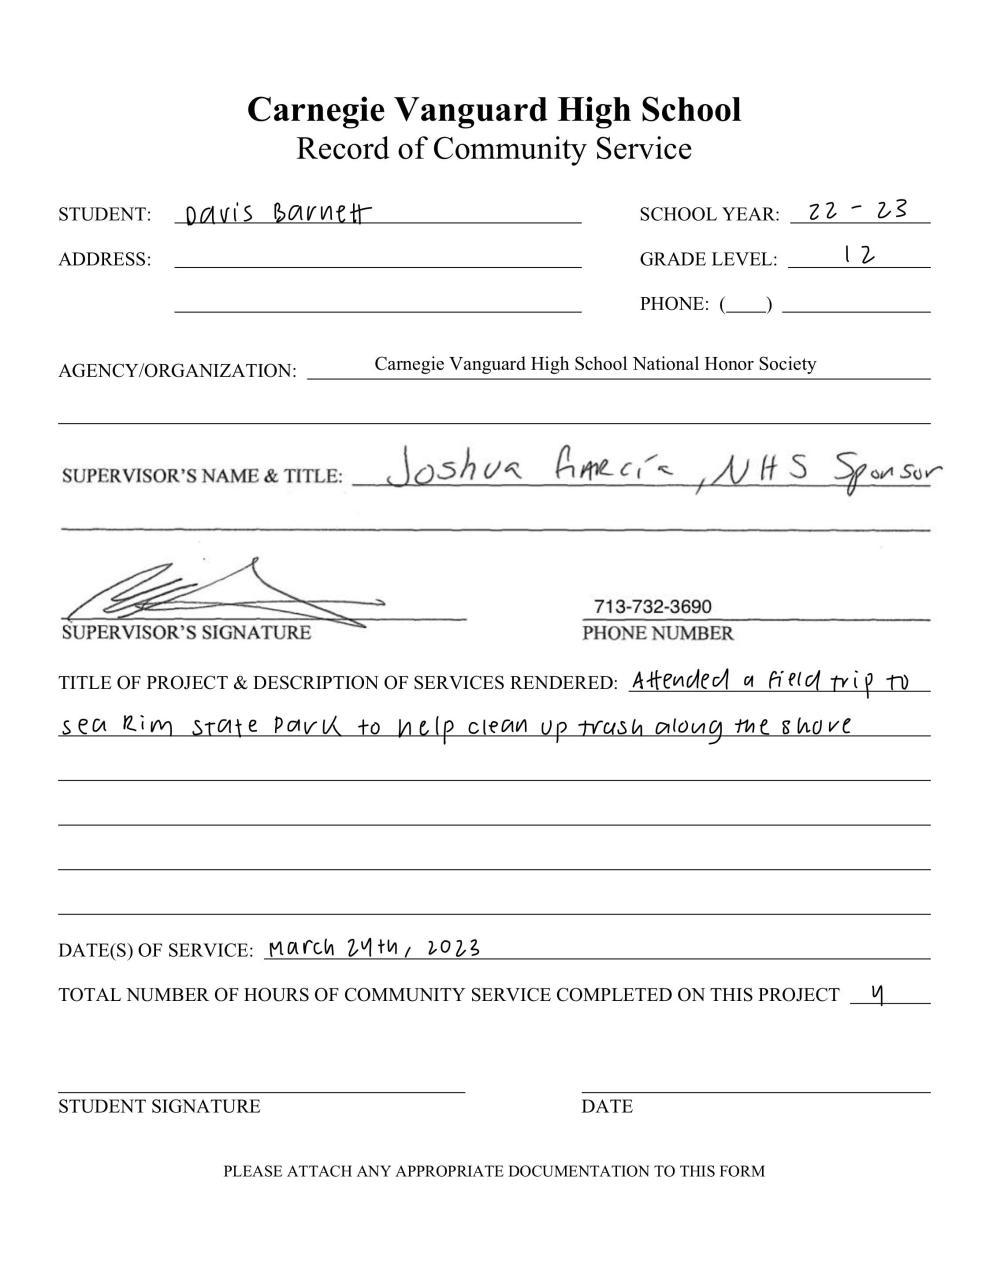 Carnegie Vanguard High School
Record of Community Service
STUDENT: Davis Barnett SCHOOL YEAR: 22 - 23
ADDRESS: GRADE LEVEL: 12
PHONE: (____)
AGENCY/ORGANIZATION: Carnegie Vanguard High School National Honor Society
SUPERVISOR'S NAME & TITLE: Joshua García, NHS Sponsor
713-732-3690
SUPERVISOR'S SIGNATURE PHONE NUMBER
TITLE OF PROJECT & DESCRIPTION OF SERVICES RENDERED: Attended a field trip to
sea Rim State Park to help clean up trash along the shore
DATE(S) OF SERVICE: March 24th, 2023
TOTAL NUMBER OF HOURS OF COMMUNITY SERVICE COMPLETED ON THIS PROJECT 4
STUDENT SIGNATURE DATE
PLEASE ATTACH ANY APPROPRIATE DOCUMENTATION TO THIS FORM